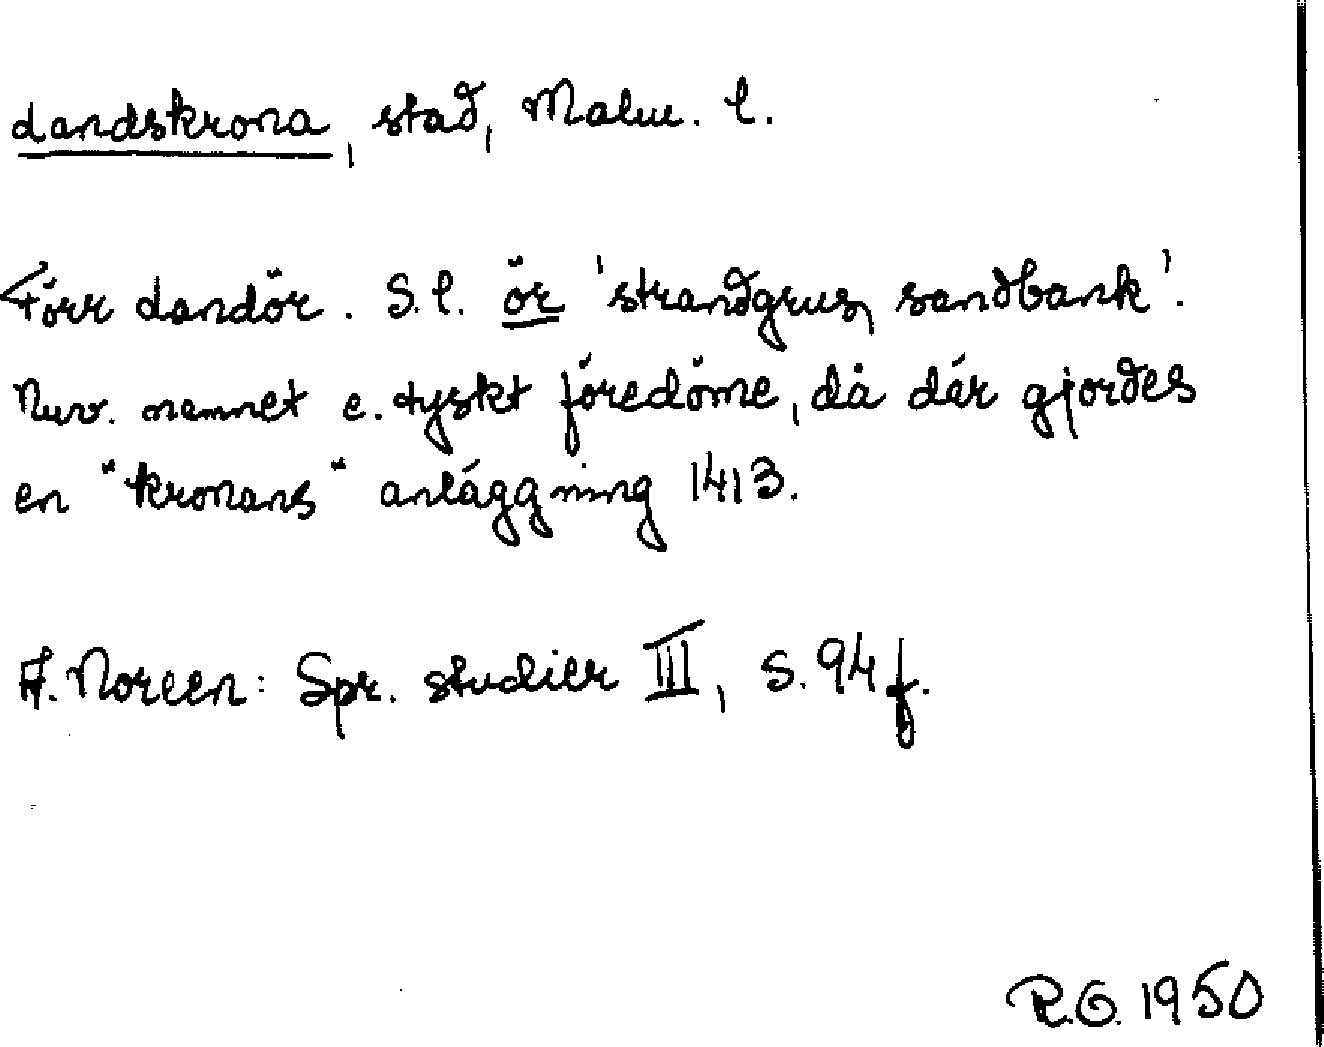 Landskrona, stad, Malm. l.
Förr Landör. S.l. ör 'strandgrus, sandbank'.
Nuv. namnet e. tyskt föredöme, då där gjordes
en "kronans" anläggning 1413.
A. Noreen: Spr. studier III, s. 94 f.
R.G. 1950